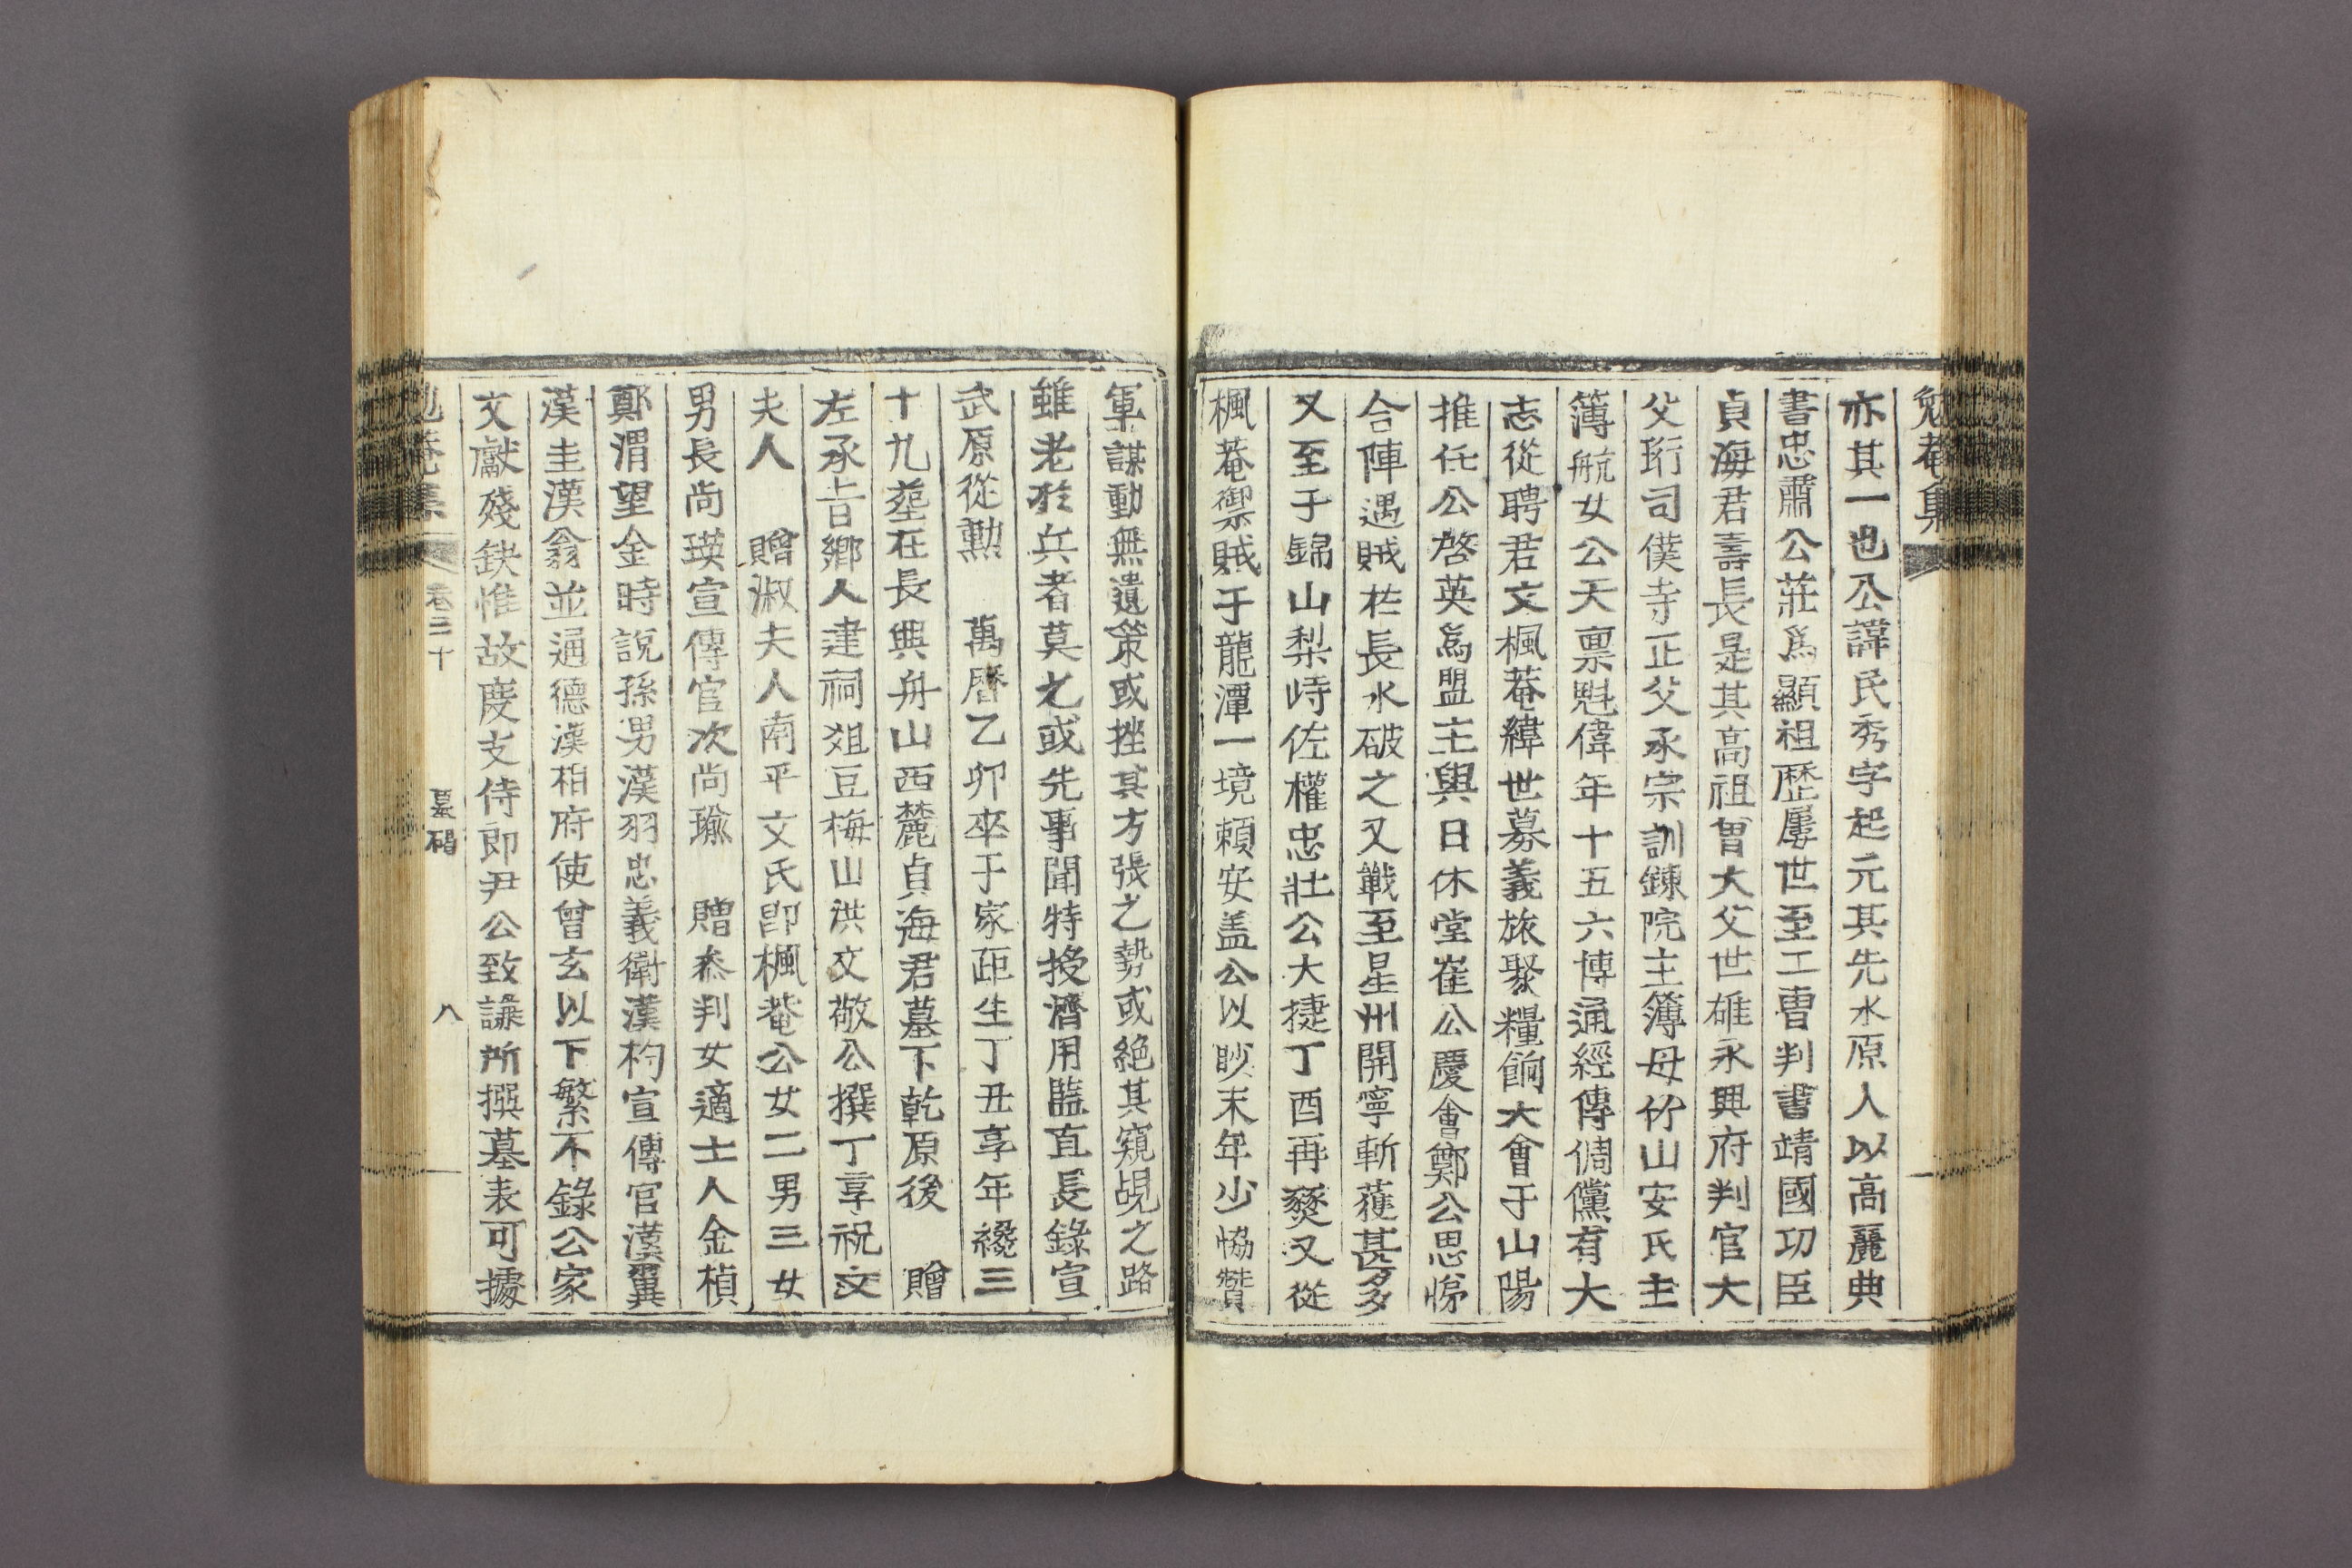 勉菴集
亦其一也公諱民秀字起元其先水原人以高麗典
書忠肅公莊爲顯祖歷屢世至工曹判書靖國功臣
貞海君壽長是其高祖曾大父世雄永興府判官大
父珩司僕寺正父承宗訓鍊院主簿母竹山安氏主
簿航女公天禀魁偉年十五六博通經傳倜儻有大
志從聘君文楓菴緯世募義旅聚糧餉大會于山陽
推任公啓英爲盟主與日休堂崔公慶會鄭公思悌
合陣遇賊於長水破之又戰至星州開寧斬獲甚多
又至于錦山梨峙佐權忠壯公大捷丁酉再燹又從
楓菴禦賊于龍潭一境賴安盖公以眇末年少恊贊
軍謀動無遺策或挫其方張之勢或絶其窺覘之路
雖老於兵者莫之或先事聞特授濟用監直長錄宣
武原從勳 萬曆乙卯卒于家距生丁丑享年纔三
十九塟在長興舟山西麓貞海君墓下乾原後 贈
左承旨鄉人建祠俎豆梅山洪文敬公撰丁享祝文
夫人 贈淑夫人南平文氏卽楓菴公女二男三女
男長尚瑛宣傳官次尚瑜 贈叅判女適士人金楨
鄭渭望金時說孫男漢羽忠義衛漢杓宣傳官漢翼
漢圭漢翁並通德漢相府使曾玄以下繁不錄公家
文獻殘缺惟故度支侍郎尹公致謙所撰墓表可據
勉菴集 卷三十 墓碣 八